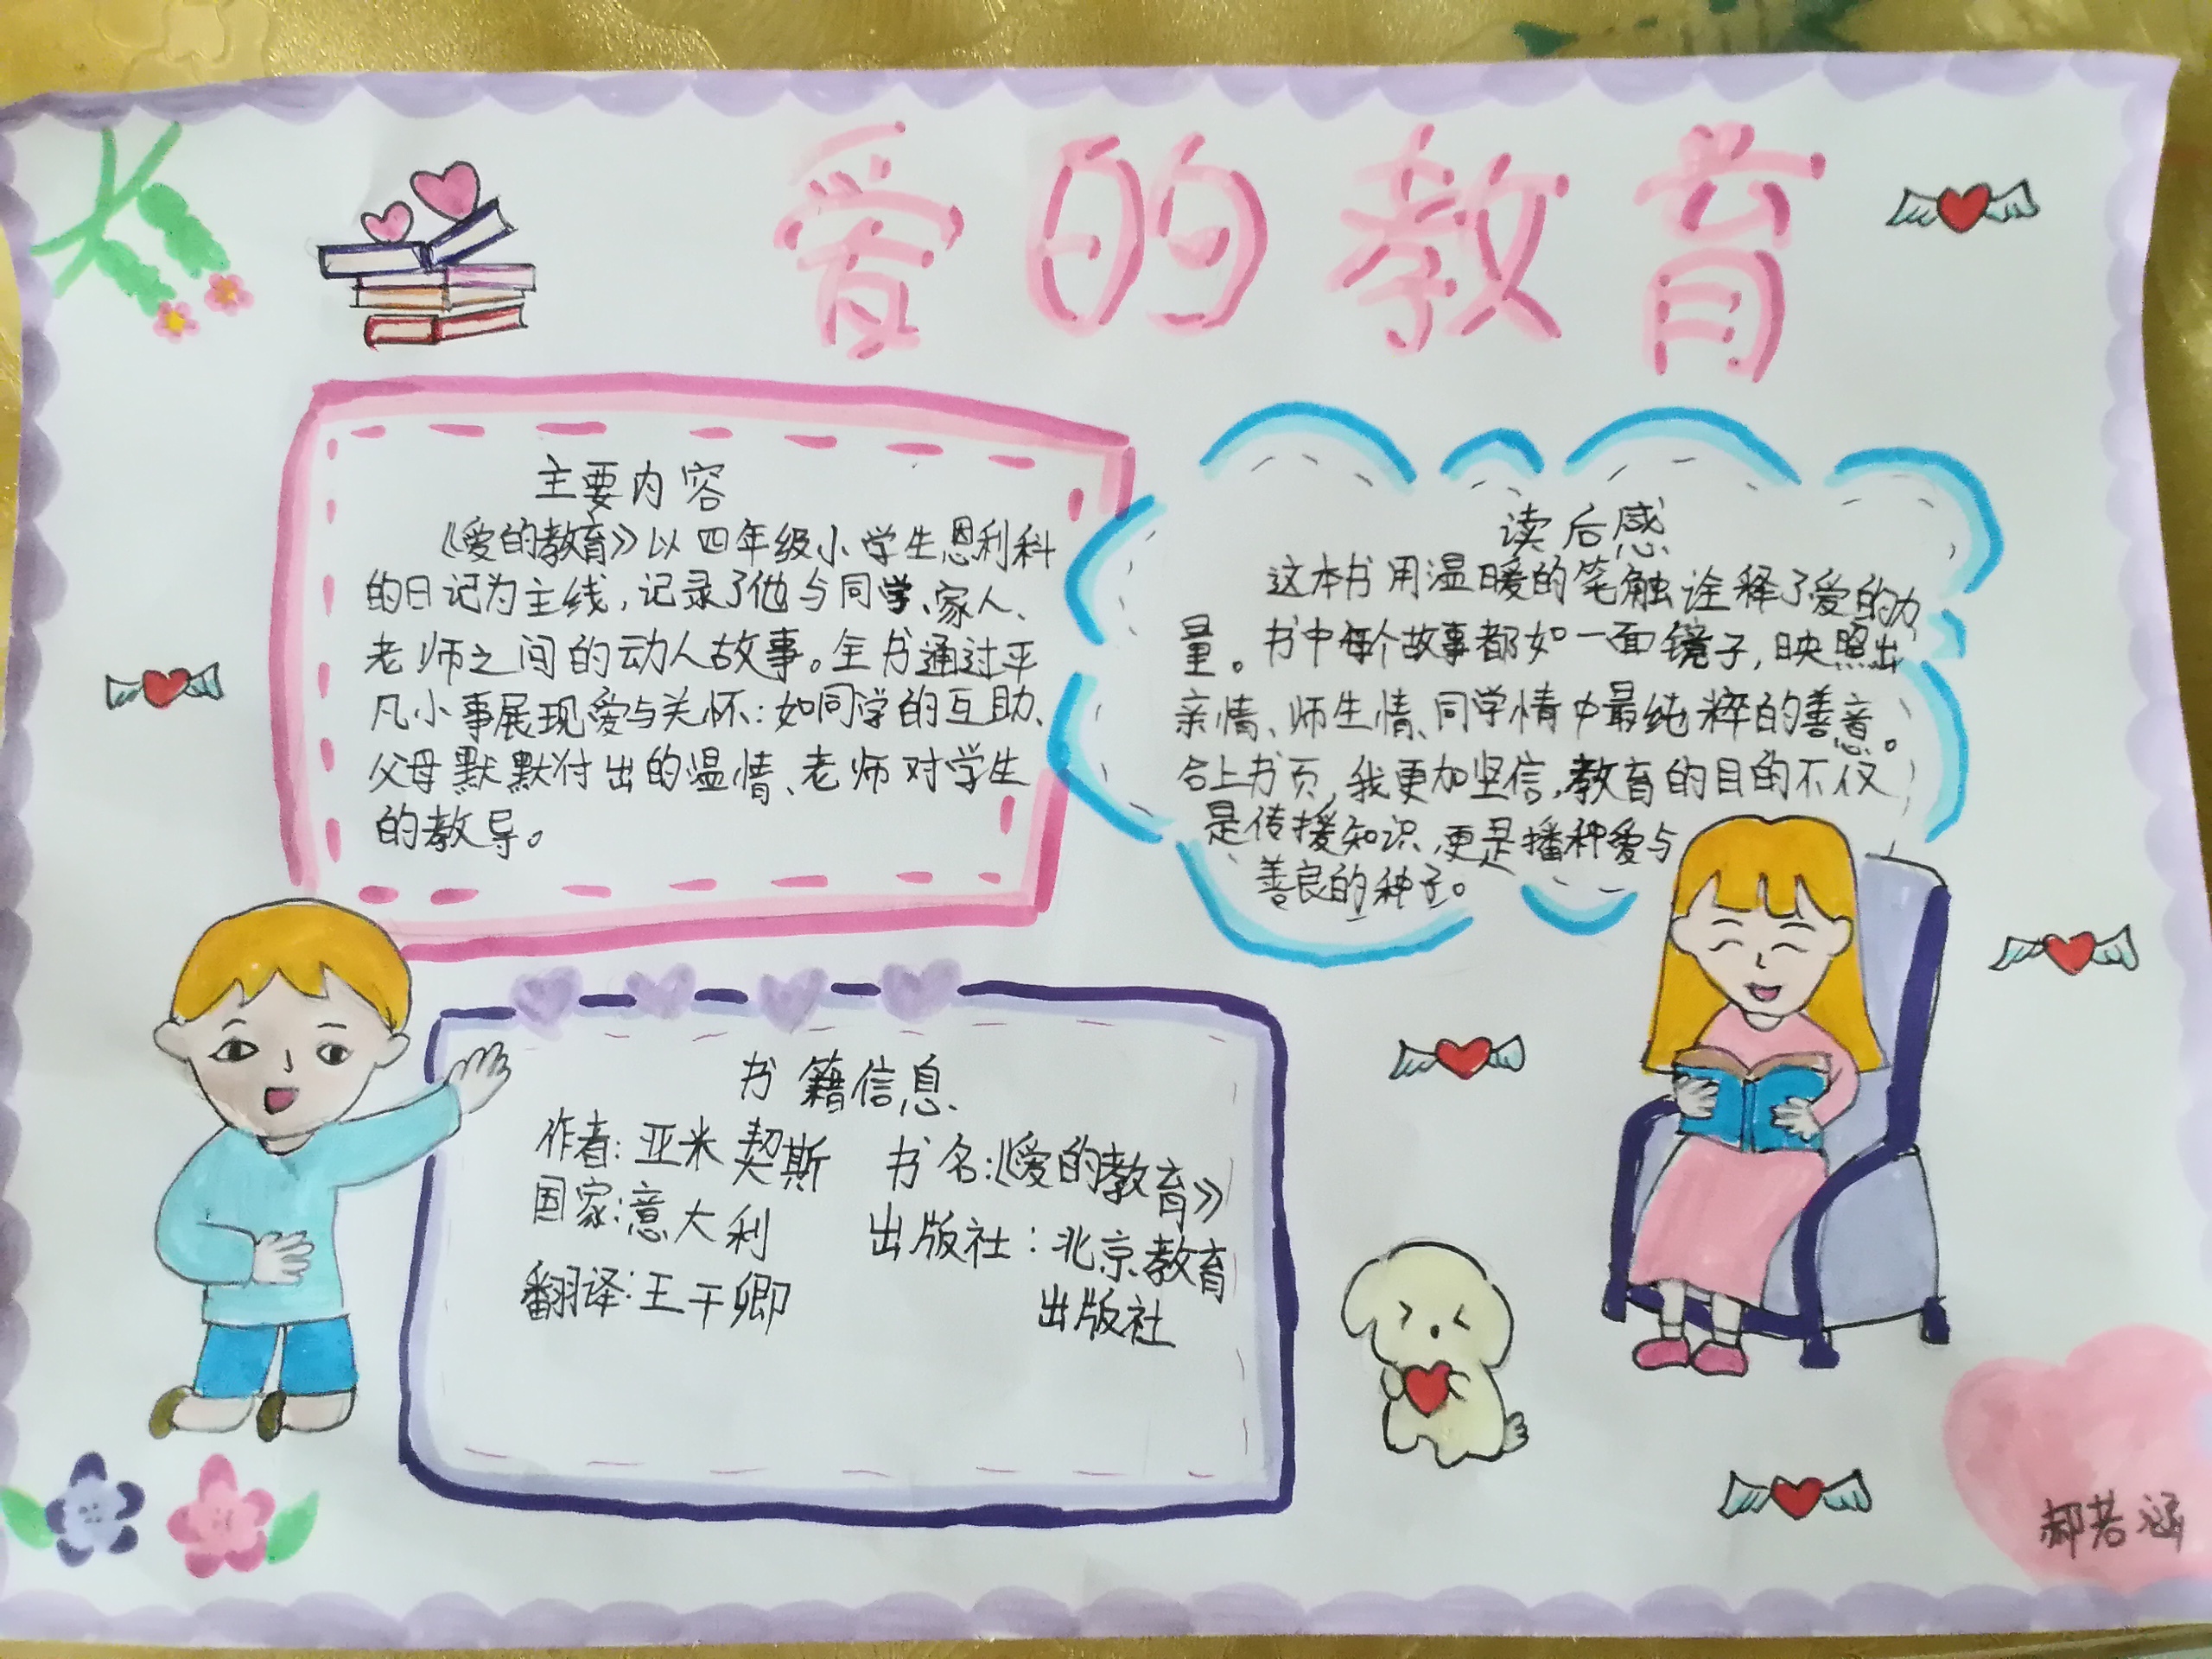 爱的教育
主要内容
《爱的教育》以四年级小学生恩利科
的日记为主线,记录了他与同学、家人、
老师之间的动人故事。全书通过平
凡小事展现爱与关怀:如同学的互助、
父母默默付出的温情、老师对学生
的教导。
读后感
这本书用温暖的笔触诠释了爱的力
量。书中每个故事都如一面镜子,映照出
亲情、师生情、同学情中最纯粹的善意。
合上书页,我更加坚信,教育的目的不仅
是传授知识,更是播种爱与
善良的种子。
书籍信息
作者:亚米契斯
国家:意大利
翻译:王干卿
书名:《爱的教育》
出版社:北京教育
出版社
郝若涵